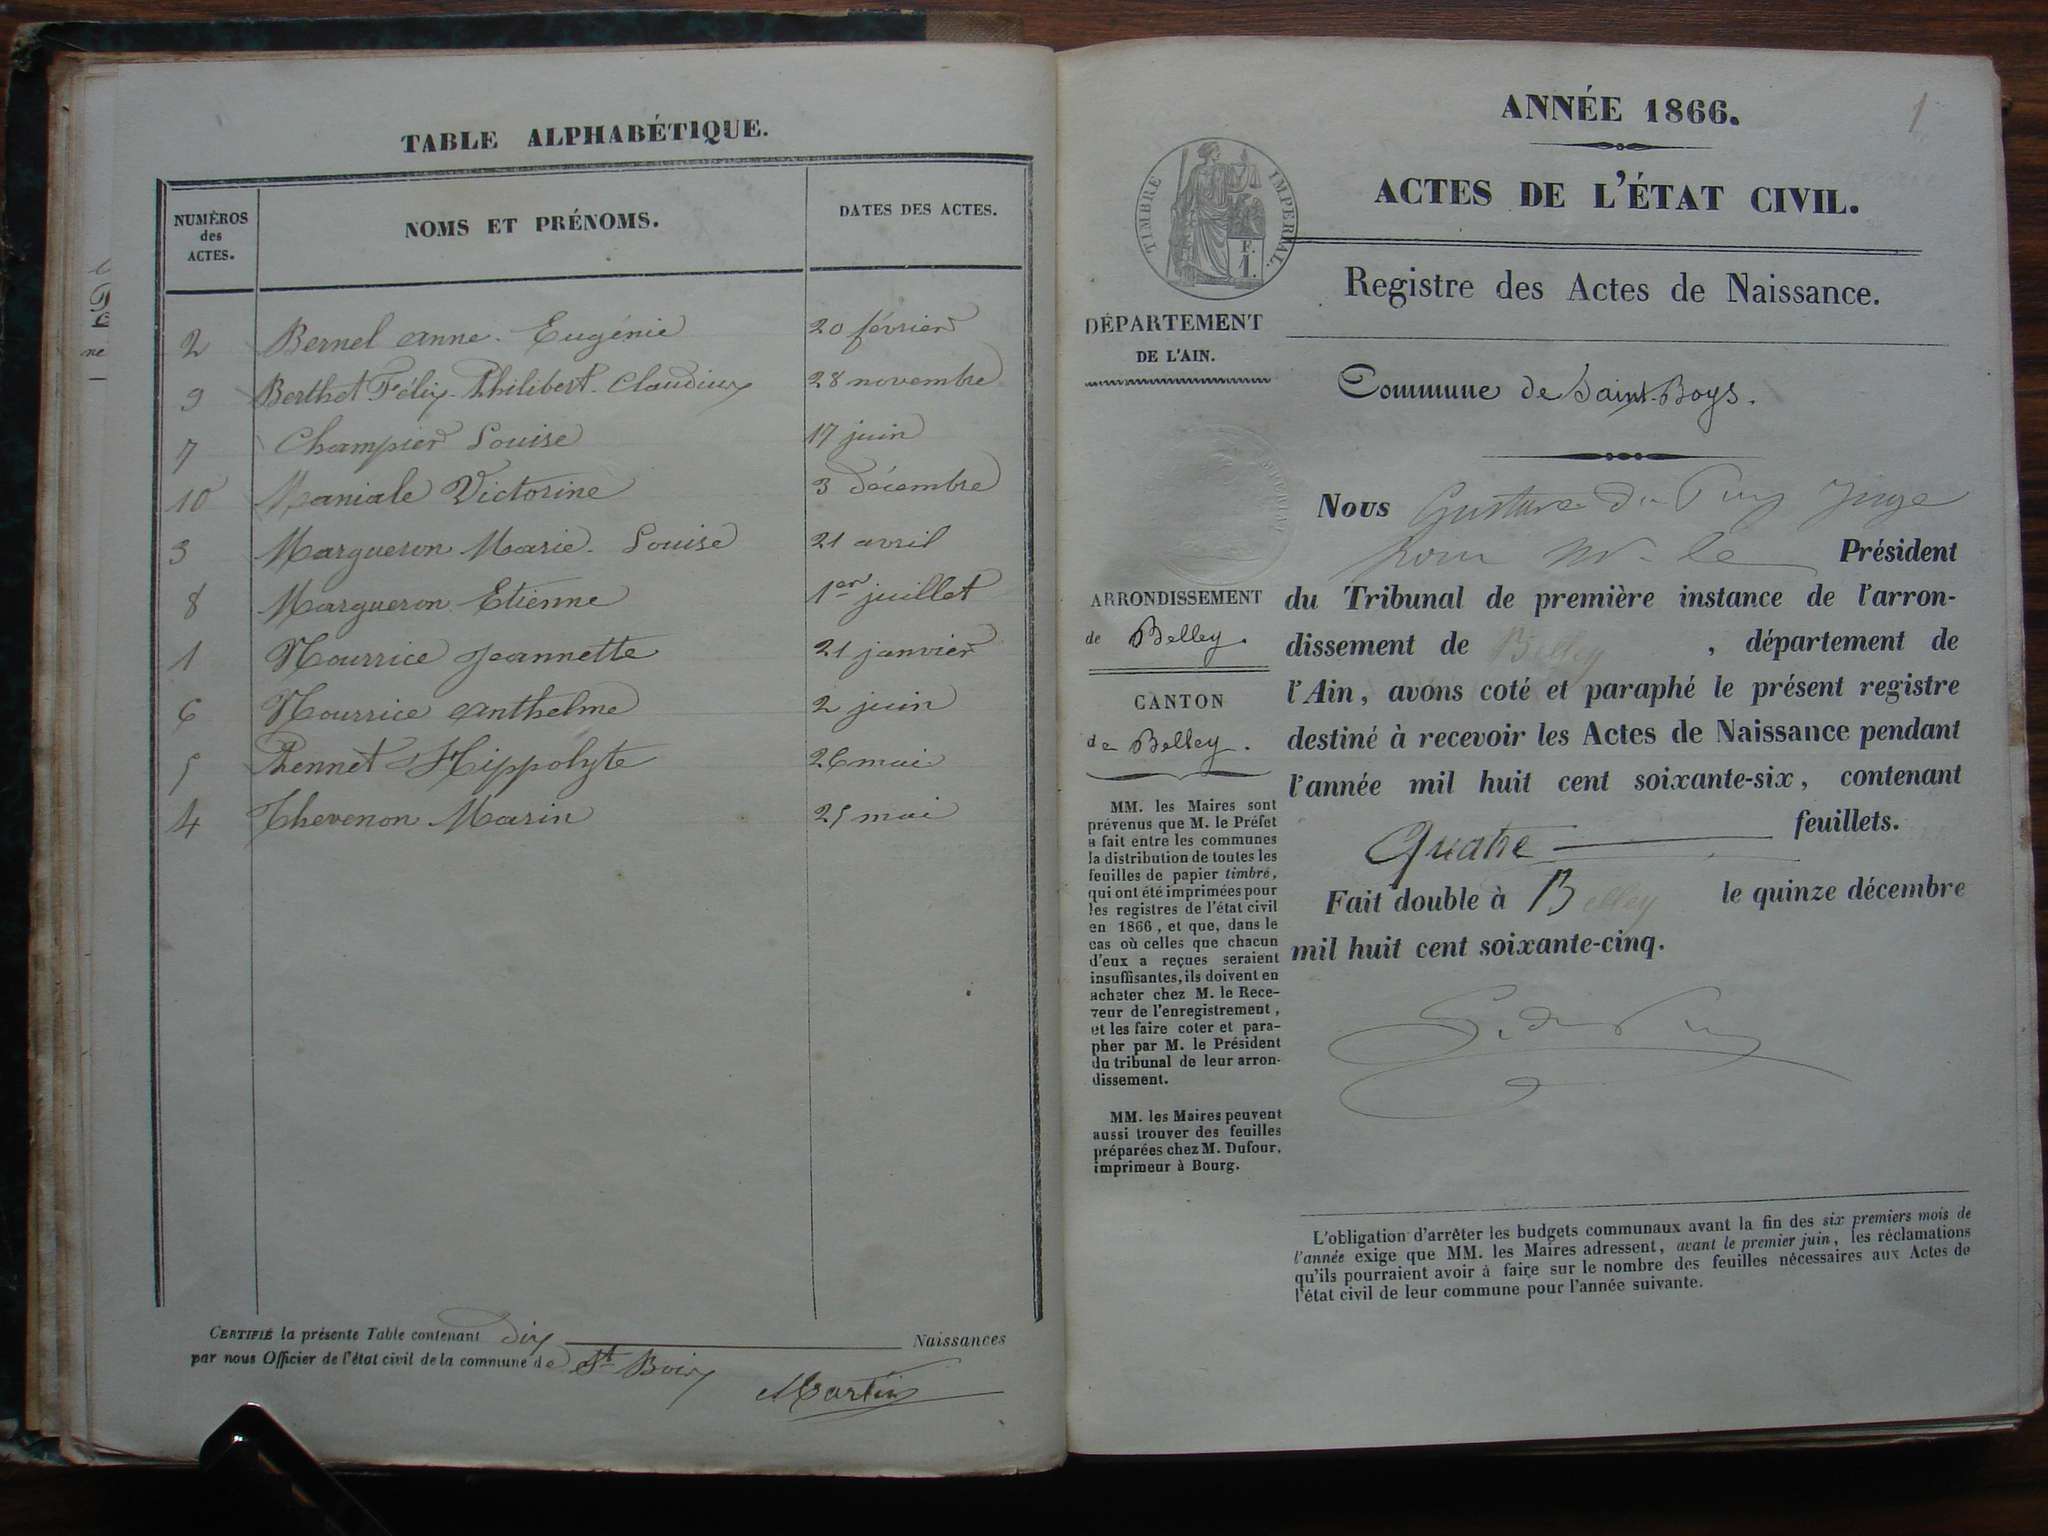 TABLE ALPHABÉTIQUE.
NUMÉROS des ACTES.
NOMS ET PRÉNOMS.
DATES DES ACTES.
2 Bernel Anne-Eugénie 20 février
9 Berthet Félix-Philibert-Claudius 28 novembre
7 Champier Louise 17 juin
10 Maniale Victorine 3 décembre
3 Margueron Marie-Louise 21 avril
8 Margueron Etienne 1er juillet
1 Nourrice Jeannette 21 janvier
6 Nourrice Anthelme 2 juin
5 Pennet Hippolyte 26 mai
4 Thevenon Marin 25 mai
CERTIFIÉ la présente Table contenant dix Naissances
par nous Officier de l'état civil de la commune de St Bois
Martin
1
ANNÉE 1866.
ACTES DE L'ÉTAT CIVIL.
TIMBRE IMPÉRIAL.
F. 1.
Registre des Actes de Naissance.
DÉPARTEMENT
DE L'AIN.
Commune de Saint-Boys.
ARRONDISSEMENT
de Belley.
CANTON
de Belley.
MM. les Maires sont
prévenus que M. le Préfet
a fait entre les communes
la distribution de toutes les
feuilles de papier timbré,
qui ont été imprimées pour
les registres de l'état civil
en 1866, et que, dans le
cas où celles que chacun
d'eux a reçues seraient
insuffisantes, ils doivent en
acheter chez M. le Rece-
veur de l'enregistrement,
et les faire coter et para-
pher par M. le Président
du tribunal de leur arron-
dissement.
MM. les Maires peuvent
aussi trouver des feuilles
préparées chez M. Dufour,
imprimeur à Bourg.
Nous Gustave Du Puy Juge
pour M. le Président
du Tribunal de première instance de l'arron-
dissement de Belley, département de
l'Ain, avons coté et paraphé le présent registre
destiné à recevoir les Actes de Naissance pendant
l'année mil huit cent soixante-six, contenant
Quatre feuillets.
Fait double à Belley le quinze décembre
mil huit cent soixante-cinq.
G. du Puy
L'obligation d'arrêter les budgets communaux avant la fin des six premiers mois de
l'année exige que MM. les Maires adressent, avant le premier juin, les réclamations
qu'ils pourraient avoir à faire sur le nombre des feuilles nécessaires aux Actes de
l'état civil de leur commune pour l'année suivante.